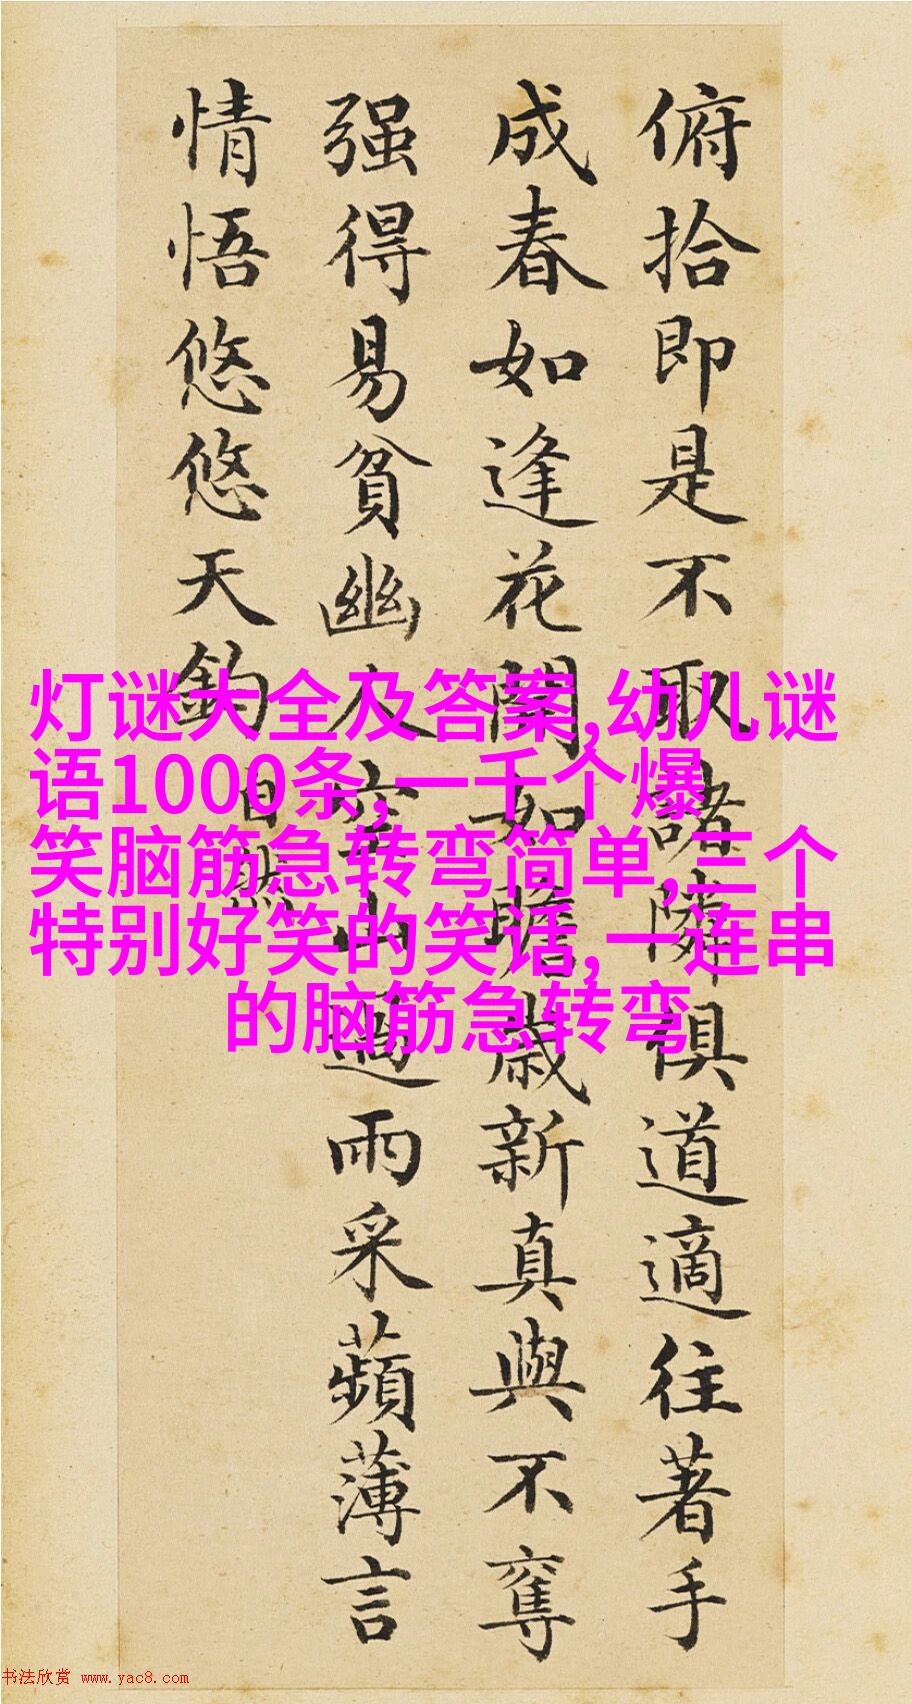 俯拾即是不取諸隣俱道適往著手
成春如逢花開如瞻歲新真與不奪
强得易貧幽人空山過雨采蘋薄言
情悟悠悠天鈞
自然
灯谜大全及答案,幼儿谜
语1000条,一千个爆
笑脑筋急转弯简单,三个
特别好笑的笑话,一连串
的脑筋急转弯
书法欣赏 www.yac8.com